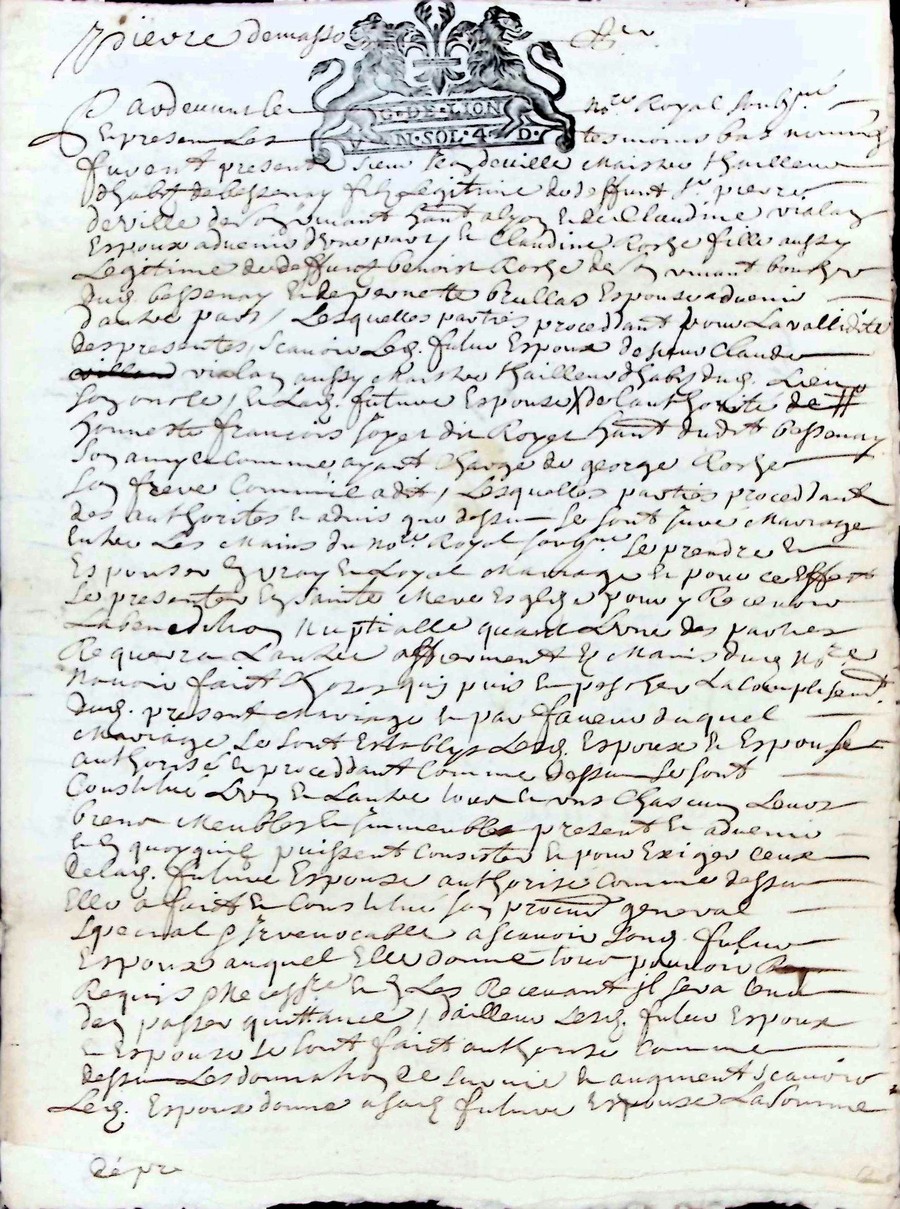 pierre demasso
G · DE · LION
V N · SOL · 4 D ·
Pardevant le no.re Royal soubs.né
En presence Les tesmoins bas nommés
furent present sieur Jean deville Maistre thailleur
dhabit de bessenay fils Legitime de deffunt Sr pierre
deville de son vivant hant a lyon et de Claudine vialay
Espoux advenir dune part, et Claudine Rorhe fille aussy
Legitime de deffunt benoist Rorhe de son vivant bourher
dud bessenay et de pernette brullas Espouse advenir
dautre part, Lesquelles parties procedant pour La vallidité
des presentes, scavoir Led. futur Espoux de sieur Claude
vialay aussy Maistre thailleur dhabits dud. Lieu
son oncle, et Lad. future Espouse de lauthorité de
honneste françois soyer dit Royer hant dudit bessenay
son amy et comme ayant charge de george Rorhe
son frere Comme a dit, Lesquelles parties procedant
des authorités et advis que dessus se sont juré Mariage
Entre Les Mains du no.re Royal soubgné se prendre et
Espouser en vray et Loyal Mariage et pour ce Effect
se presenter en sainte Mere Esglize pour y Recevoir
La benediction Nuptialle quand Lune des parties
Requerra Lautre affierment es Mains dud No.re
Navoir faict choses quy puis empescher Lacomplisemt
dud. present Mariage et par faveur duquel
Mariage se sont Establys Lesd. Espoux et Espouse
authorisé et proceddant Comme dessus se sont
Constitué Lun et Lautre tous et uns chascun Leurs
biens Meubles et immeubles present et advenir
en quoy quils puissent consister et pour Exiger ceux
de lad. future Espouse authorise comme dessus
Elle a faict et constitué son procur general
special et irrevocable a scavoir sond. futur
Espoux auquel Elle donne tout pouvoir
Requis et Necessre et en Les Recevant il sera tenu
den passer quittance, dailleur Lesd. futur Espoux
et Espouse se sont faict authorise comme
dessus Les donnation de survie et augment scavoir
Led. Espoux donne a sad future Espouse La somme